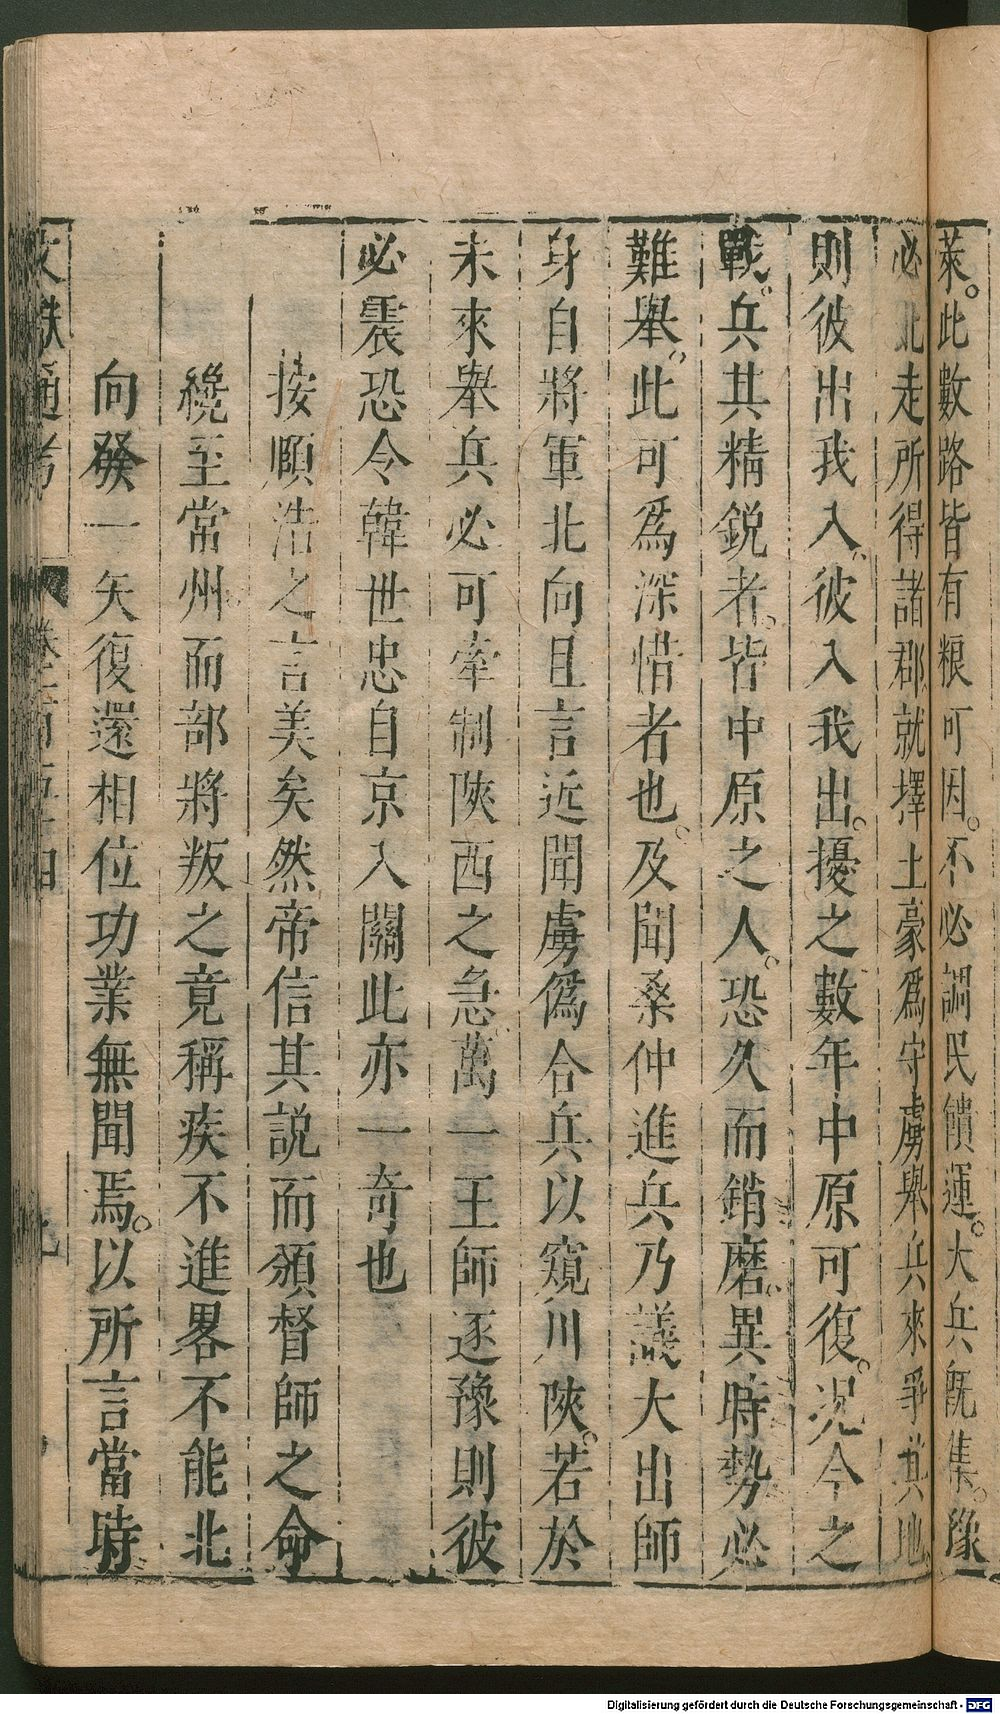 萊此數路皆有粮可因不必調民饋運大兵既集豫
必北走所得諸郡就擇土豪爲守虜舉兵來爭其地
則彼出我入彼入我出擾之數年中原可復況今之
戰兵其精銳者皆中原之人恐久而銷磨異時勢必
難舉此可爲深惜者也及聞桑仲進兵乃議大出師
身自將軍北向且言近聞虜僞合兵以窺川陝若於
未來舉兵必可牽制陝西之急萬一王師逐豫則彼
必震恐令韓世忠自京入關此亦一奇也
按頤浩之言美矣然帝信其説而頒督師之命
纔至常州而部將叛之竟稱疾不進畧不能北
向發一矢復還相位功業無聞焉以所言當時
文獻通考
卷一百五十四
Digitalisierung gefördert durch die Deutsche Forschungsgemeinschaft - DFG